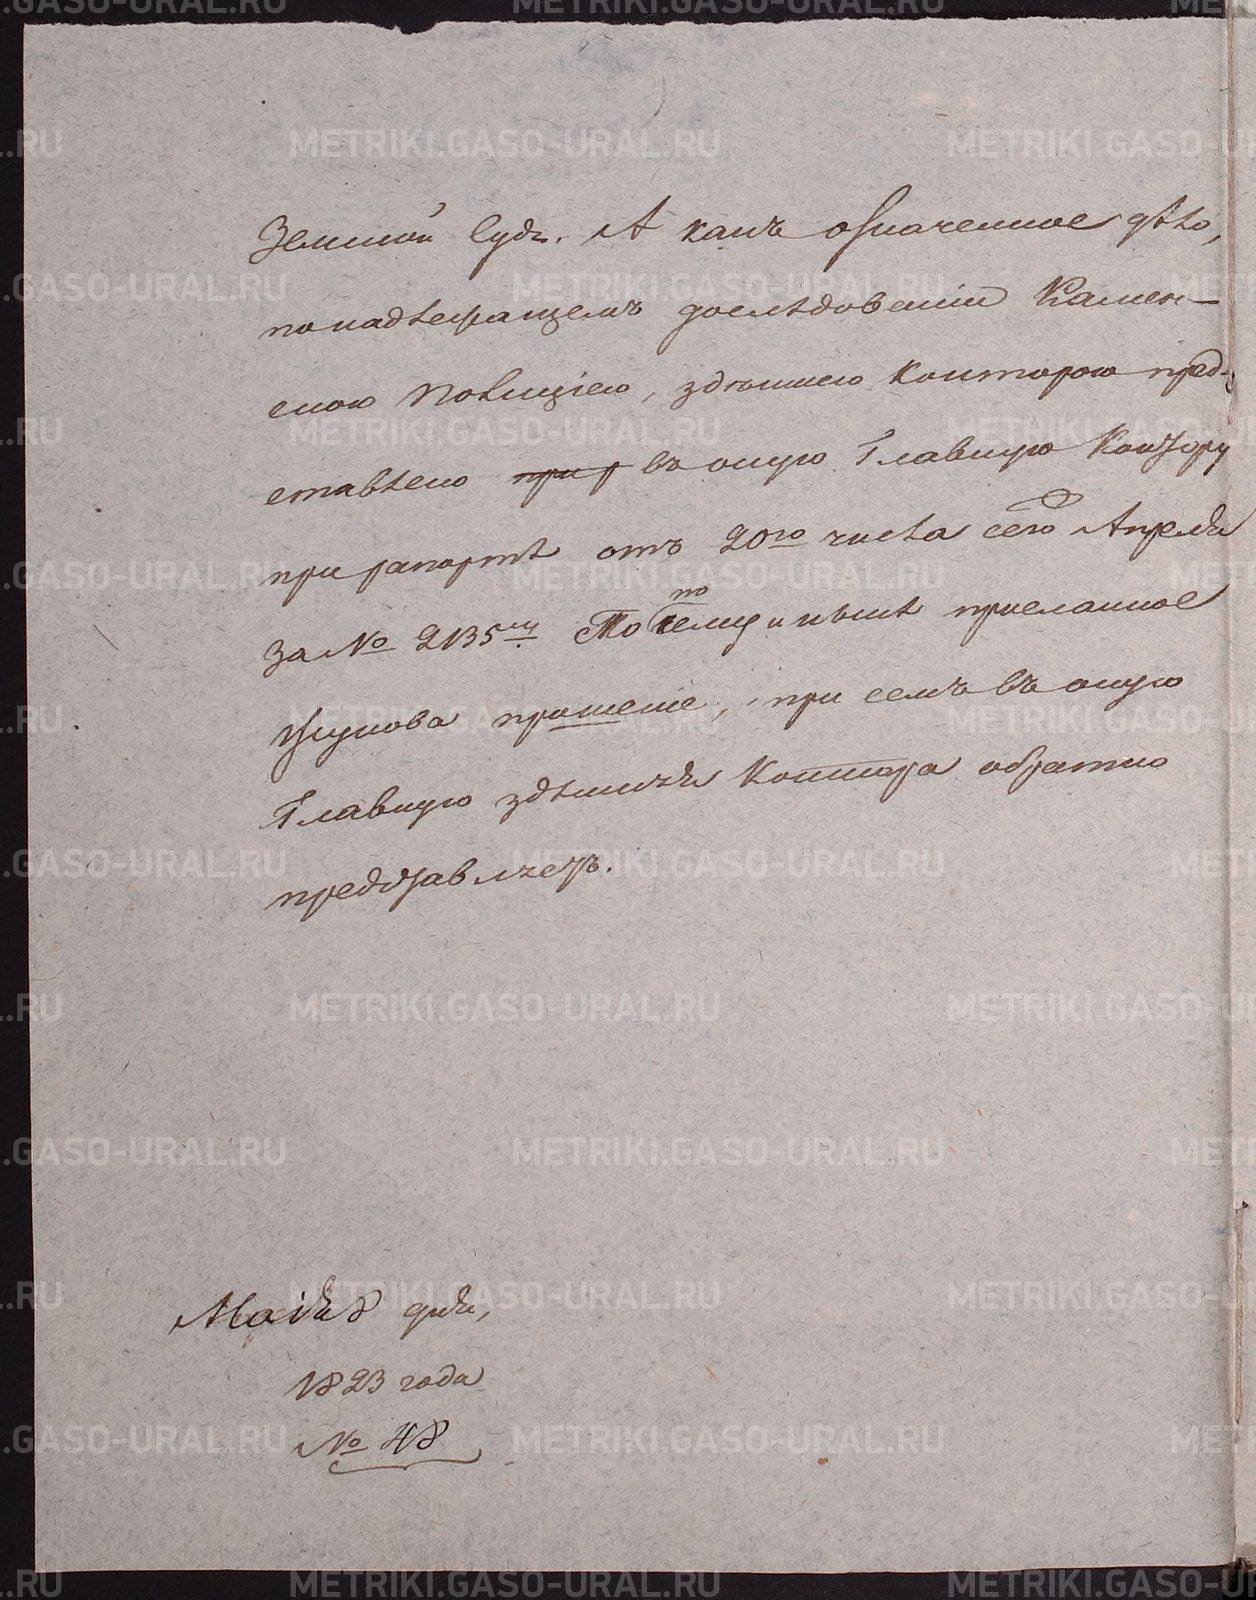 Земской Судъ. А какъ означенное дѣло,
по надлежащемъ дослѣдованіи Камен-
скою Полиціею, здѣшнею Конторою пред-
ставлено при р въ оную Главную Контору
при рапортѣ отъ 20го числа сего Апреля
За № 2135мъ. То по сему и нынѣ присланное
прошеніе, при семъ въ оную
Главную здѣшняя Контора обратно
представляетъ.
Маія 8 дня,
1823 года
№ 48
METRIKI.GASO-URAL.RU